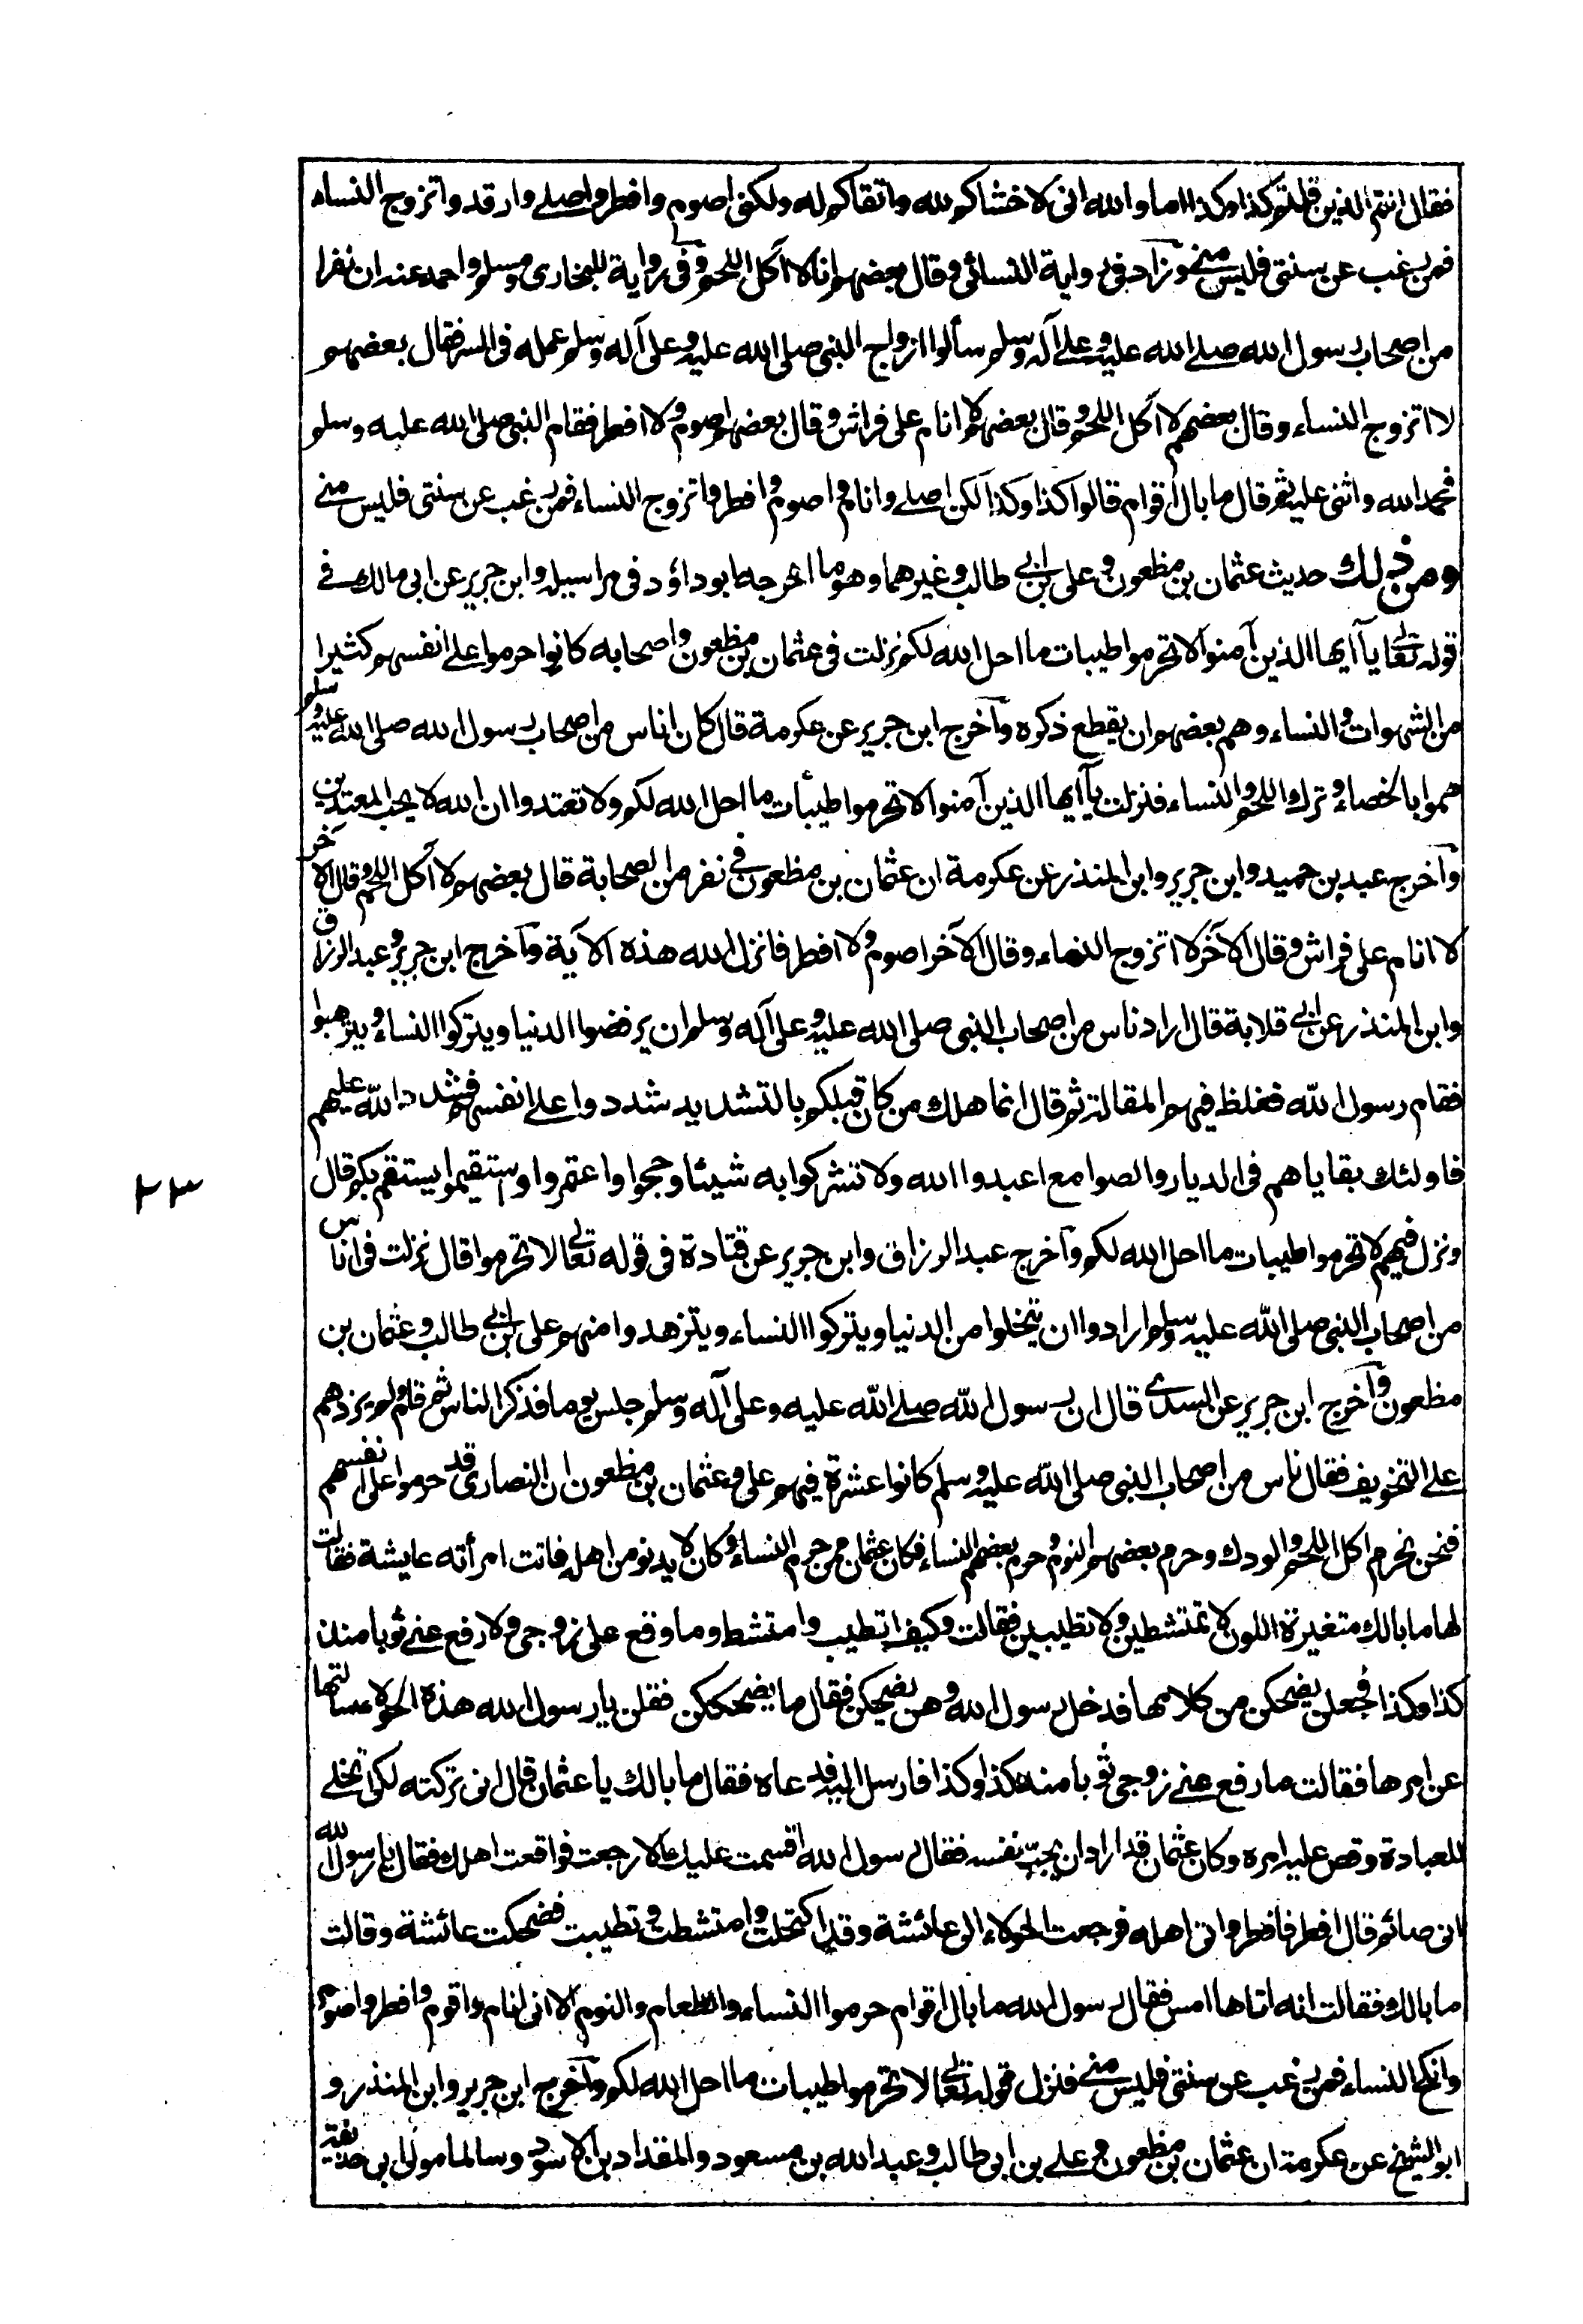 فقال انتم الذين قلتم كذا وكذا اما والله انى لاخشاكم لله واتقاكم له ولكنى اصوم وافطر واصلى وارقد واتزوج النساء
فمن رغب عن سنتى فليس منى وزاد فى رواية النسائى وقال بعضهم انا لا آكل اللحم وفى رواية للبخارى ومسلم واحمد عنه ان نفرا
من اصحاب رسول الله صلى الله عليه وعلى آله وسلم سألوا ازواج النبى صلى الله عليه وعلى آله وسلم عمله فى السر فقال بعضهم
لا اتزوج النساء وقال بعضهم لا آكل اللحم وقال بعضهم لا انام على فراش وقال بعضهم اصوم ولا افطر فقام النبى صلى الله عليه وسلم
فحمد الله واثنى عليه ثم قال ما بال اقوام قالوا كذا وكذا لكن اصلى وانام واصوم وافطر واتزوج النساء فمن رغب عن سنتى فليس منى
ومن ذلك حديث عثمان بن مظعون وعلى بن ابى طالب وغيرهما وهو ما اخرجه ابوداؤد فى مراسيله وابن جرير عن ابى مالك فى
قوله تعالى يا آيها الذين آمنوا لا تحرموا طيبات ما احل الله لكم نزلت فى عثمان بن مظعون واصحابه كانوا حرموا على انفسهم كثيرا
من الشهوات والنساء وهم بعضهم ان يقطع ذكره وآخرج ابن جرير عن عكرمة قال كان اناس من اصحاب رسول الله صلى الله عليه وسلم
هموا بالخصاء وترك اللحم والنساء فنزلت يآ آيها الذين آمنوا لا تحرموا طيبات ما احل الله لكم ولا تعتدوا ان الله لا يحب المعتدين
وآخرج عبد بن حميد وابن جرير وابن المنذر عن عكرمة ان عثمان بن مظعون فى نفر من الصحابة قال بعضهم لا آكل اللحم وقال الآخر
لا انام على فراش وقال الآخر لا اتزوج النساء وقال الآخر اصوم ولا افطر فانزل الله هذه الآية وآخرج ابن جرير وعبد الرزاق
وابن المنذر عن ابى قلابة قال اراد ناس من اصحاب النبى صلى الله عليه وعلى آله وسلم ان يرفضوا الدنيا ويتركوا النساء ويترهبوا
فقام رسول الله فغلظ فيهم المقالة ثم قال انما هلك من كان قبلكم بالتشديد شددوا على انفسهم فشدد الله عليهم
فاولئك بقاياهم فى الديار والصوامع اعبدوا الله ولا تشركوا به شيئا وحجوا واعتمروا واستقيموا يستقم بكم قال
ونزل فيهم لا تحرموا طيبات ما احل الله لكم وآخرج عبد الرزاق وابن جرير عن قتادة فى قوله تعالى لا تحرموا قال نزلت فى اناس
من اصحاب النبى صلى الله عليه وسلم ارادوا ان يتخلوا من الدنيا ويتركوا النساء ويتزهدوا منهم على بن ابى طالب وعثمان بن
مظعون وآخرج ابن جرير عن السدى قال ان رسول الله صلى الله عليه وعلى آله وسلم جلس يوما فذكر الناس ثم قام ولم يزدهم
على التخويف فقال ناس من اصحاب النبى صلى الله عليه وسلم كانوا عشرة فيهم على وعثمان بن مظعون ان النصارى قد حرموا على انفسهم
فنحن نحرم اكل اللحم والودك وحرم بعضهم النوم وحرم بعضهم النساء فكان عثمان ممن حرم النساء وكان لا يدنو من اهله فاتت امرأته عايشة فقالت
لها ما بالك متغيرة اللون لا تمتشطين ولا تطيبين فقالت وكيف اتطيب وامتشط وما وقع على زوجى ولا رفع عنى ثوبا منذ
كذا وكذا فجعلن يضحكن من كلامها فدخل رسول الله وهن يضحكن فقال ما يضحككن فقلن يا رسول الله هذه الحولاء سالتها
عن امرها فقالت ما رفع عنى زوجى ثوبا منذ كذا وكذا فارسل اليه فدعاه فقال ما بالك يا عثمان قال انى تركته لكى اتخلى
للعبادة وقص عليه امره وكان عثمان قد اراد ان يجب نفسه فقال رسول الله اقسمت عليك الا رجعت فواقعت اهلك فقال يا رسول الله
انى صائم قال افطر فافطر واتى اهله فرجعت الحولاء الى عائشة وقد اكتحلت وامتشطت وتطيبت فضحكت عائشة وقالت
ما بالك فقالت انه اتاها امس فقال رسول الله ما بال اقوام حرموا النساء والطعام والنوم الا انى انام واقوم وافطر واصوم
وانكح النساء فمن رغب عن سنتى فليس منى فنزل قوله تعالى لا تحرموا طيبات ما احل الله لكم وآخرج ابن جرير وابن المنذر و
ابو الشيخ عن عكرمة ان عثمان بن مظعون وعلى بن ابى طالب وعبد الله بن مسعود والمقداد بن الاسود وسالما مولى ابى حذيفة
٢٣